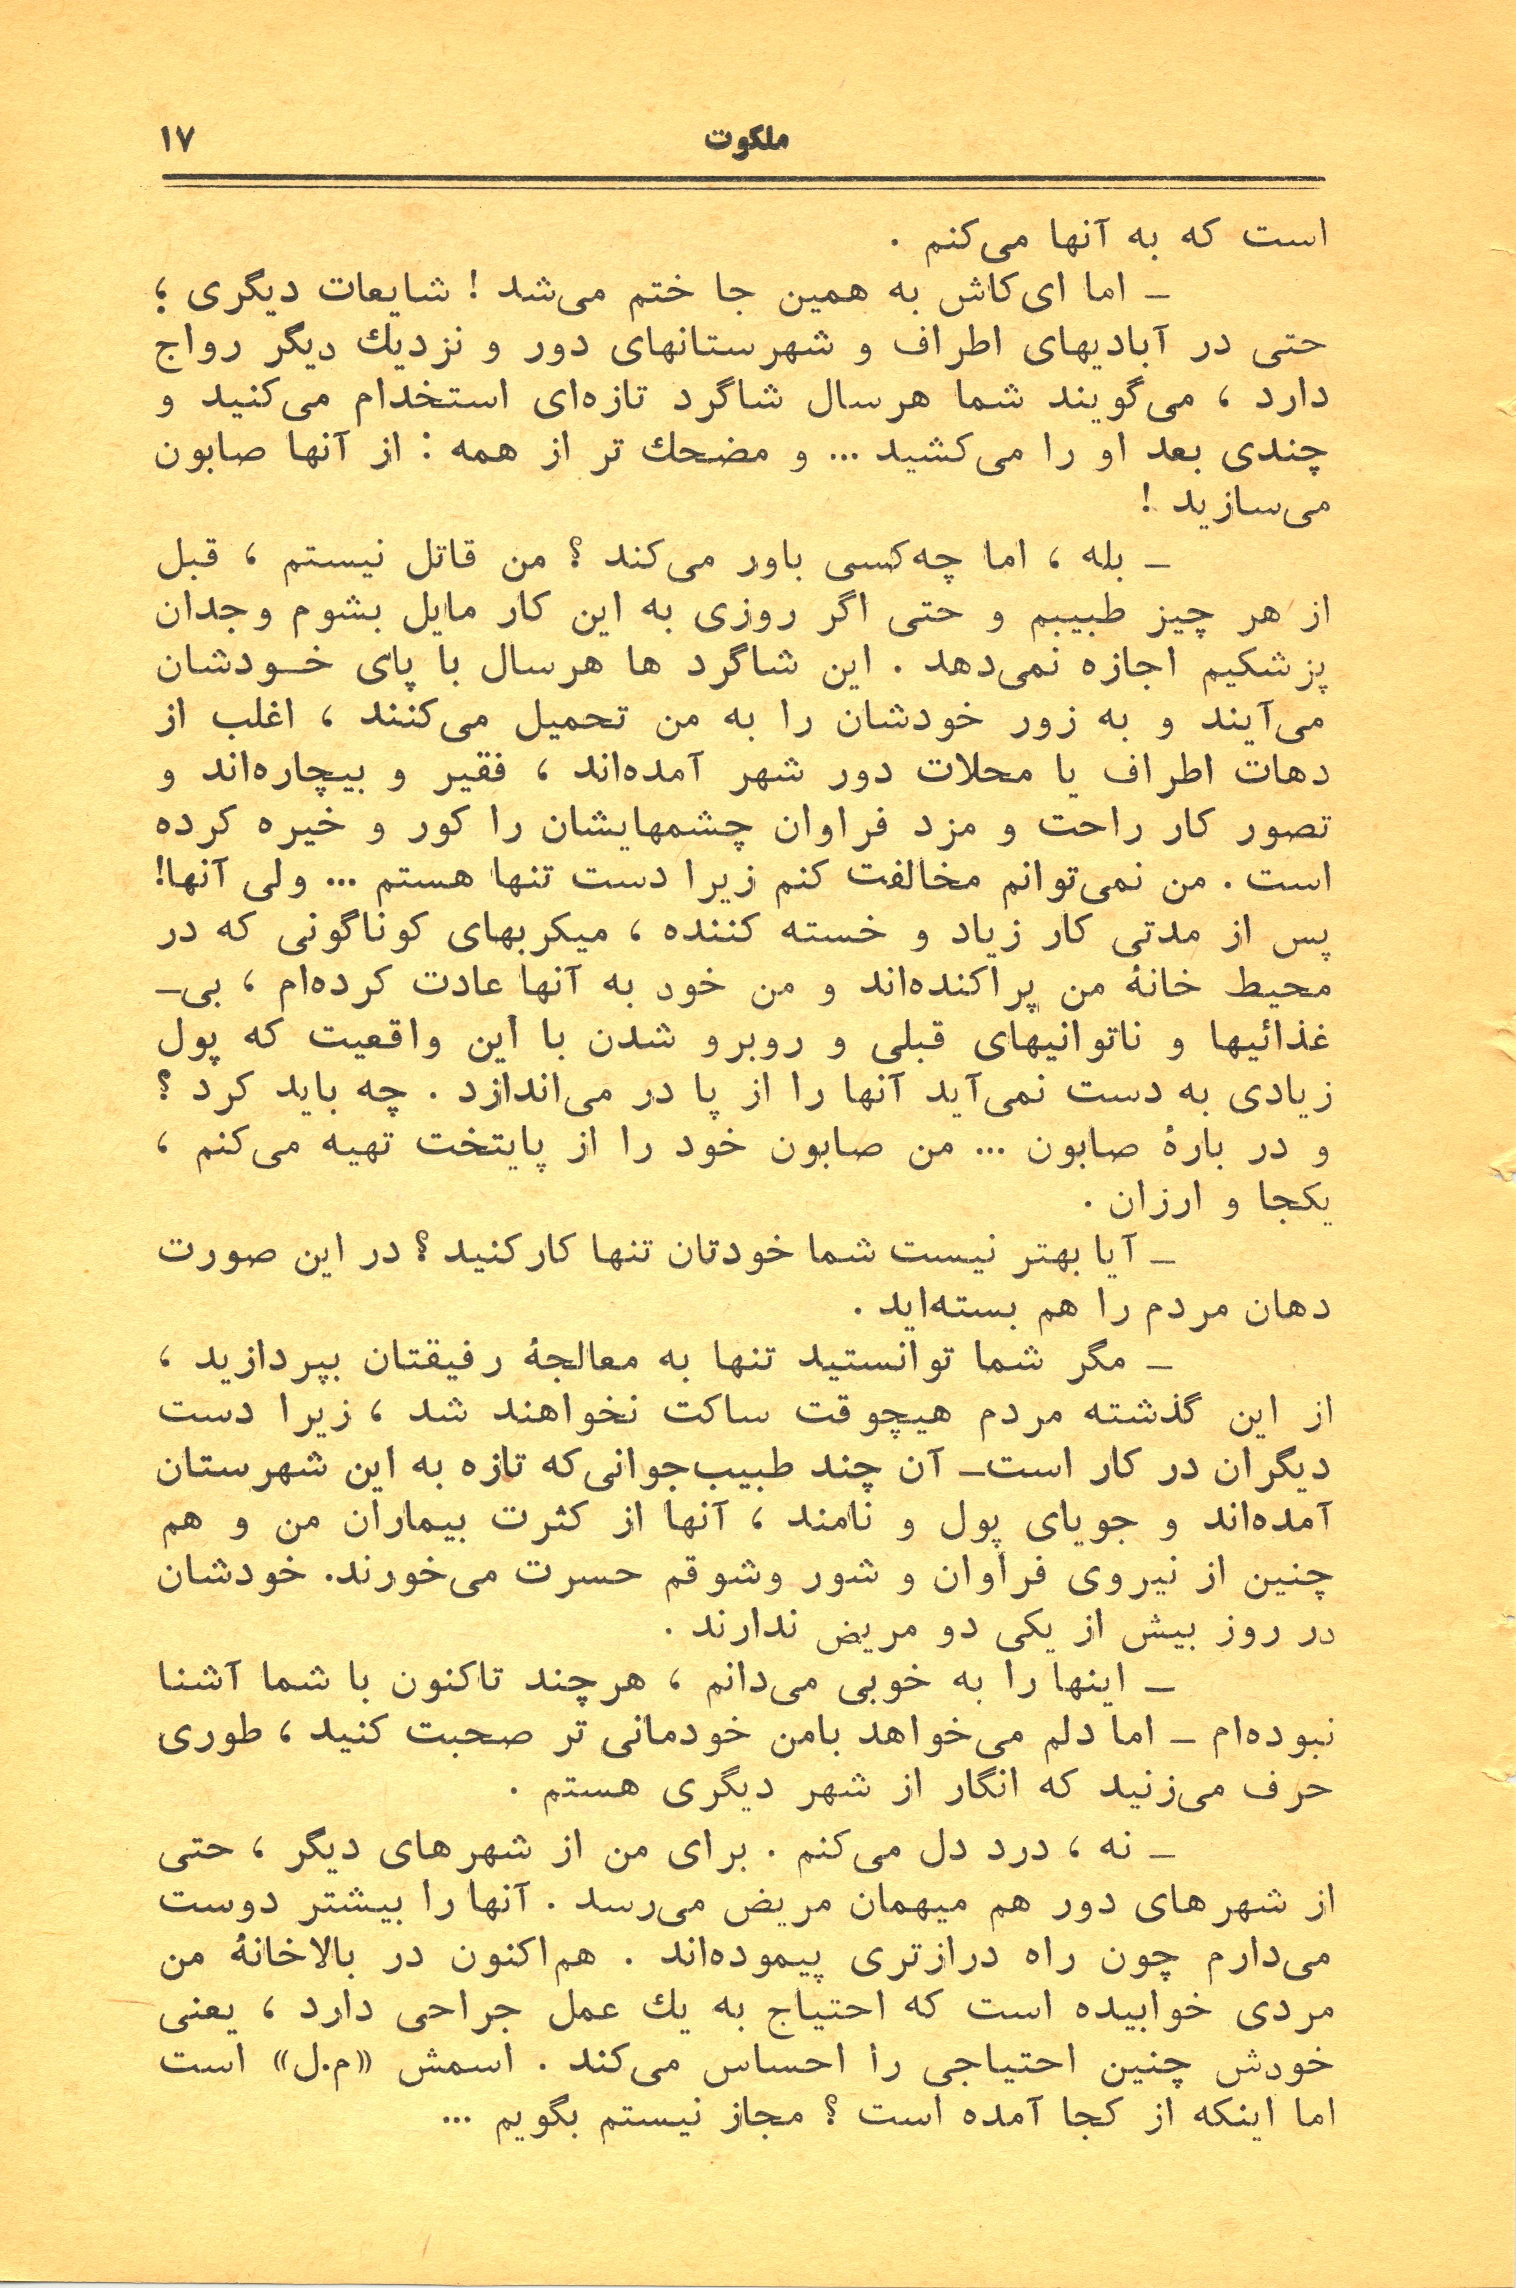 ملکوت
۱۷
است که به آنها می‌کنم .
ـ اما ای‌کاش به همین جا ختم می‌شد ! شایعات دیگری ؛
حتی در آبادیهای اطراف و شهرستانهای دور و نزدیك دیگر رواج
دارد ، می‌گویند شما هرسال شاگرد تازه‌ای استخدام می‌کنید و
چندی بعد او را می‌کشید ... و مضحك تر از همه : از آنها صابون
می‌سازید !
ـ بله ، اما چه‌کسی باور می‌کند ؟ من قاتل نیستم ، قبل
از هر چیز طبیبم و حتی اگر روزی به این کار مایل بشوم وجدان
پزشکیم اجازه نمی‌دهد . این شاگرد ها هرسال با پای خـودشان
می‌آیند و به زور خودشان را به من تحمیل می‌کنند ، اغلب از
دهات اطراف یا محلات دور شهر آمده‌اند ، فقیر و بیچاره‌اند و
تصور کار راحت و مزد فراوان چشمهایشان را کور و خیره کرده
است . من نمی‌توانم مخالفت کنم زیرا دست تنها هستم ... ولی آنها!
پس از مدتی کار زیاد و خسته کننده ، میکربهای کوناگونی که در
محیط خانهٔ من پراکنده‌اند و من خود به آنها عادت کرده‌ام ، بی‌ـ
غذائیها و ناتوانیهای قبلی و روبرو شدن با این واقعیت که پول
زیادی به دست نمی‌آید آنها را از پا در می‌اندازد . چه باید کرد ؟
و در بارهٔ صابون ... من صابون خود را از پایتخت تهیه می‌کنم ،
یکجا و ارزان .
ـ آیا بهتر نیست شما خودتان تنها کارکنید ؟ در این صورت
دهان مردم را هم بسته‌اید .
ـ مگر شما توانستید تنها به معالجهٔ رفیقتان بپردازید ،
از این گذشته مردم هیچوقت ساکت نخواهند شد ، زیرا دست
دیگران در کار است‌ـ آن چند طبیب‌جوانی‌که تازه به این شهرستان
آمده‌اند و جویای پول و نامند ، آنها از کثرت بیماران من و هم
چنین از نیروی فراوان و شور وشوقم حسرت می‌خورند. خودشان
در روز بیش از یکی دو مریض ندارند .
ـ اینها را به خوبی می‌دانم ، هرچند تاکنون با شما آشنا
نبوده‌ام ـ اما دلم می‌خواهد بامن خودمانی تر صحبت کنید ، طوری
حرف می‌زنید که انگار از شهر دیگری هستم .
ـ نه ، درد دل می‌کنم . برای من از شهرهای دیگر ، حتی
از شهرهای دور هم میهمان مریض می‌رسد . آنها را بیشتر دوست
می‌دارم چون راه درازتری پیموده‌اند . هم‌اکنون در بالاخانهٔ من
مردی خوابیده است که احتیاج به یك عمل جراحی دارد ، یعنی
خودش چنین احتیاجی را احساس می‌کند . اسمش «م.ل» است
اما اینکه از کجا آمده است ؟ مجاز نیستم بگویم ...